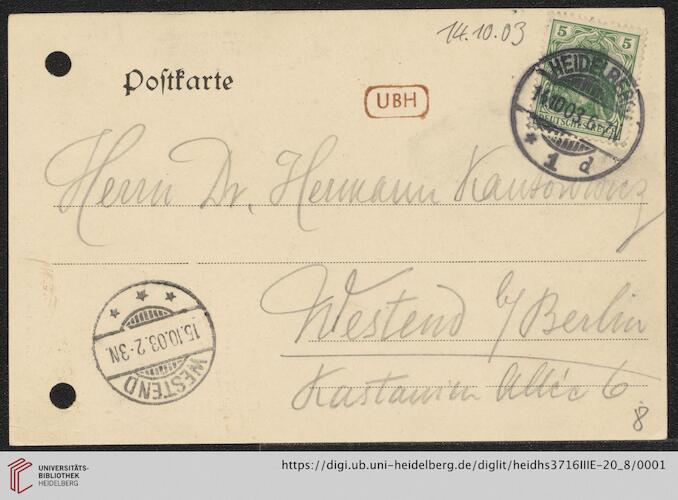 14.10.03
5 5
HEIDELBERG
14.10.03.6-7
DEUTSCHES REICH
* 1 d
Postkarte
UBH
Herrn Dr. Hermann Kantorowicz
Westend b/ Berlin
Kastanien Allée 6
15.10.03.2-3N.
WESTEND
8
UNIVERSITÄTS-
BIBLIOTHEK
HEIDELBERG
https://digi.ub.uni-heidelberg.de/diglit/heidhs3716IIIE-20_8/0001